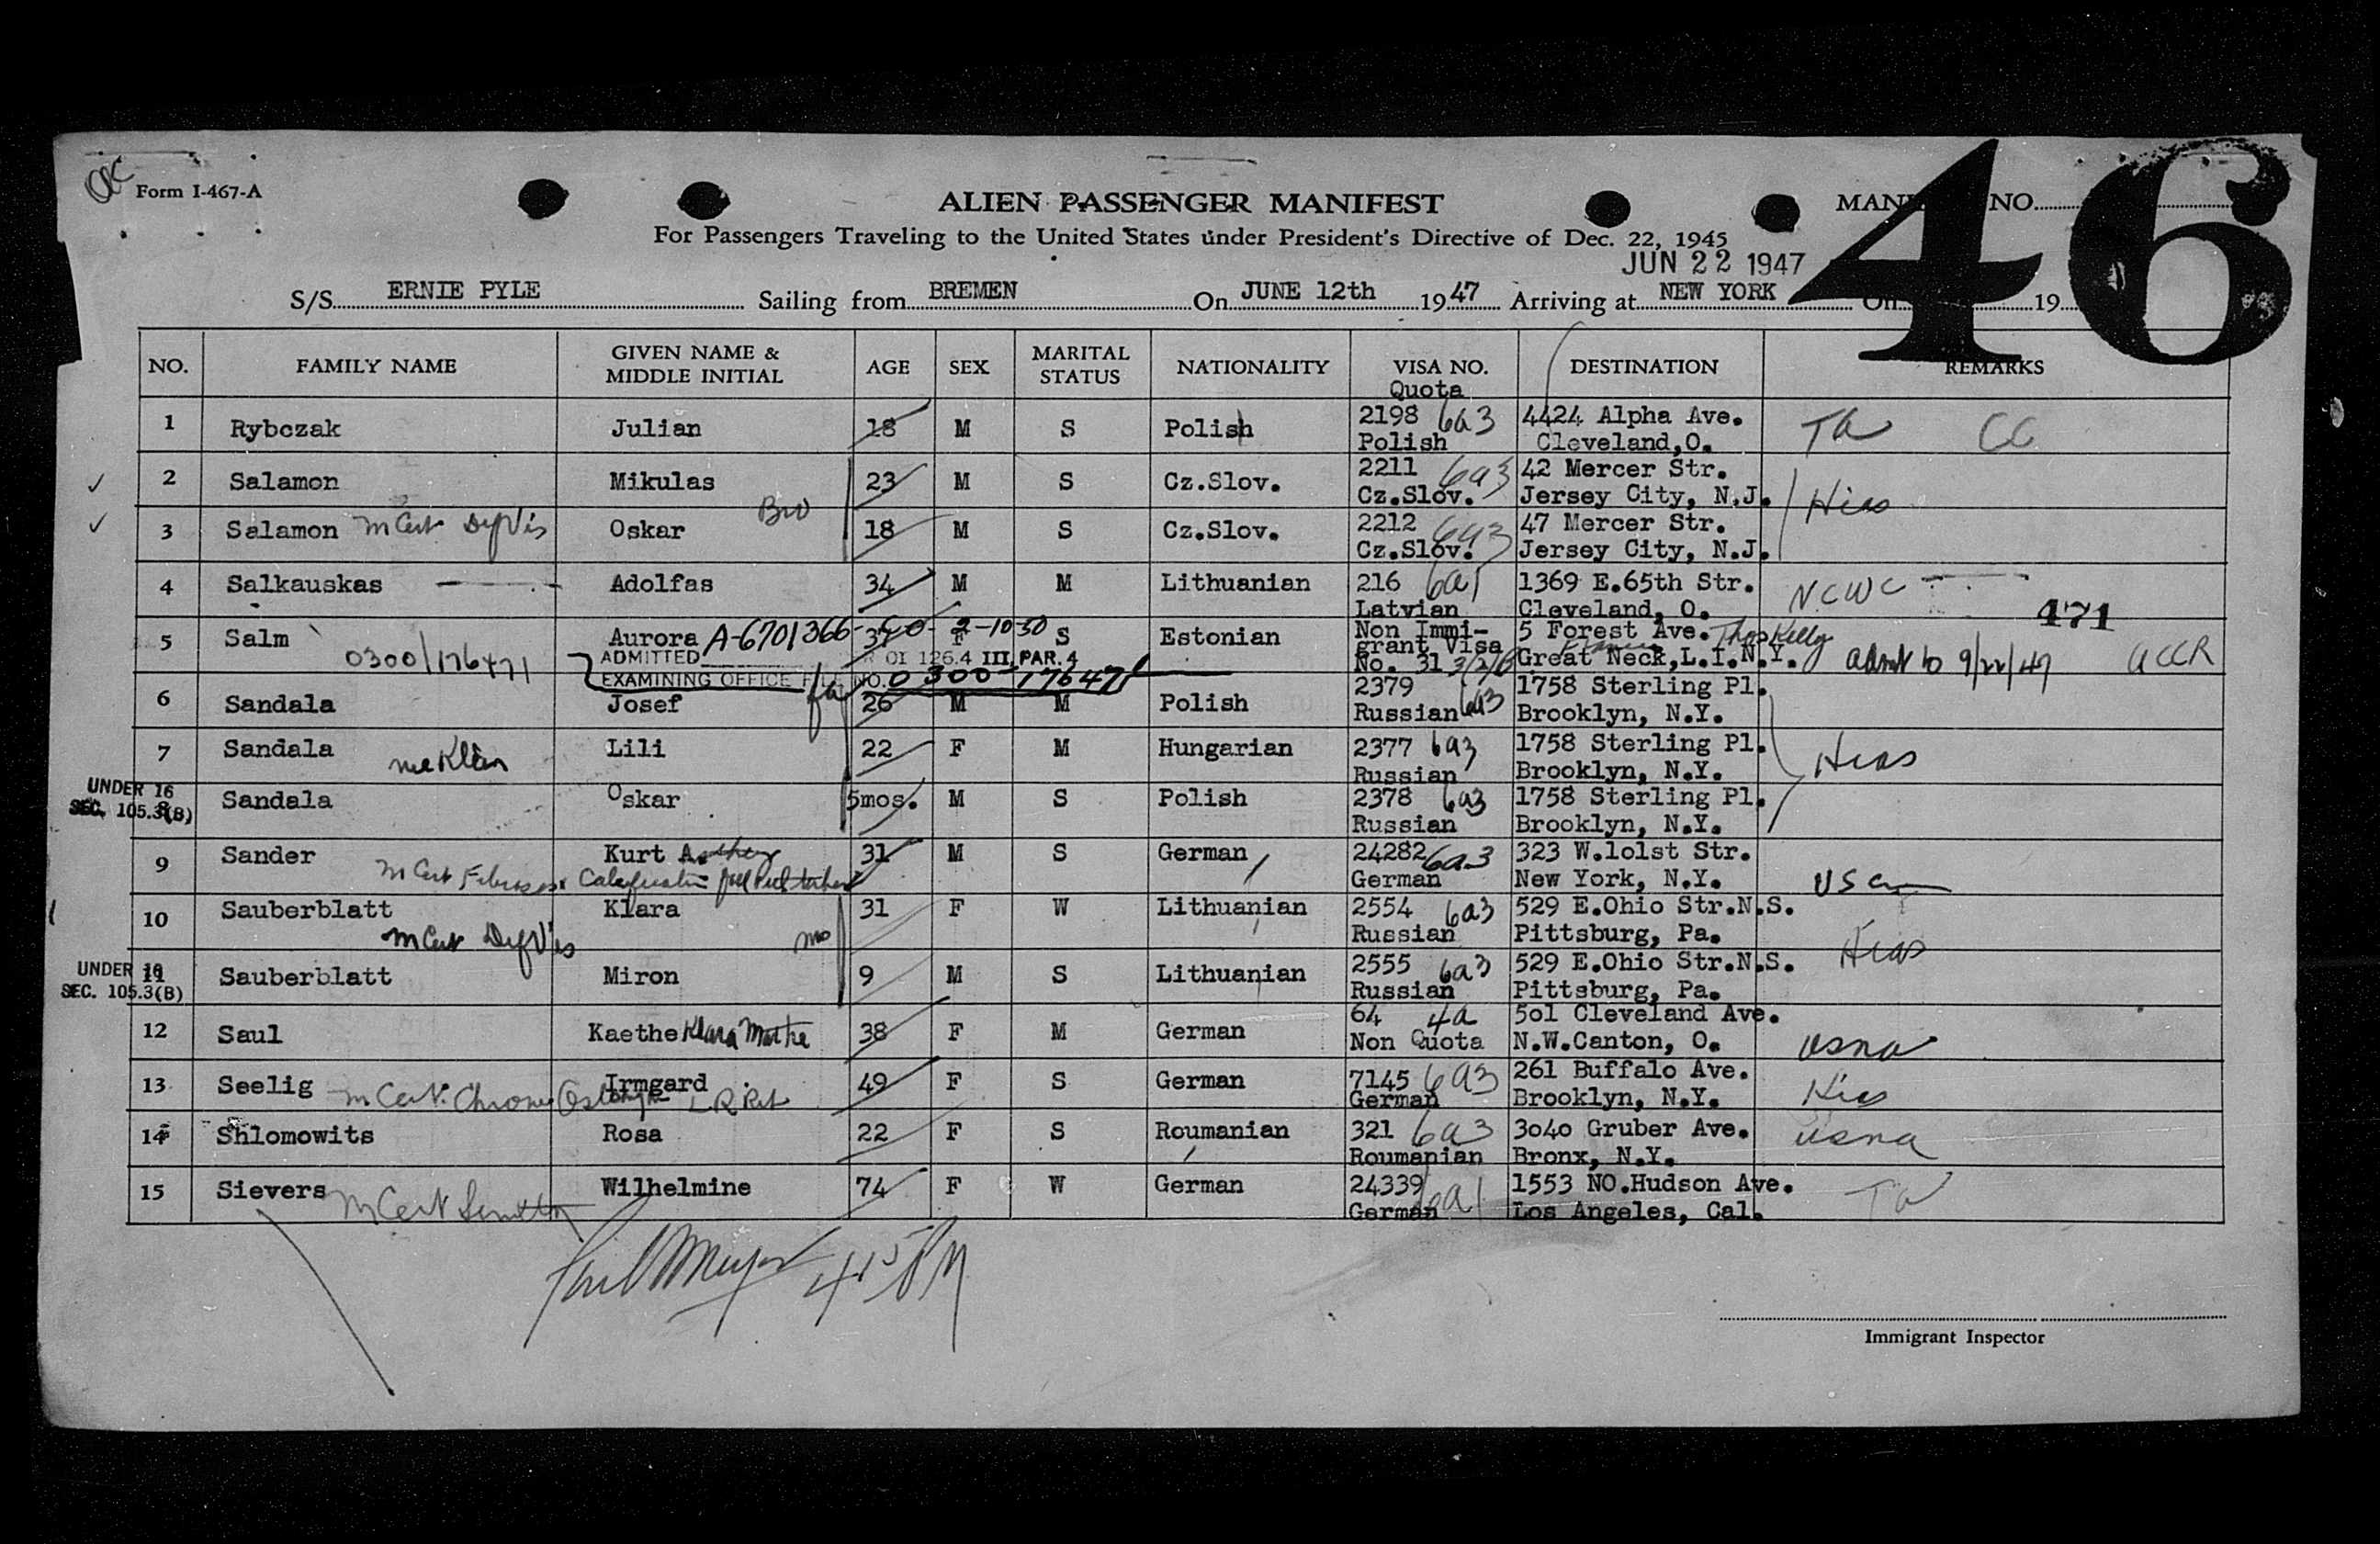 OK
Form I-467-A
ALIEN PASSENGER MANIFEST
MANI NO.
46
For Passengers Traveling to the United States under President's Directive of Dec. 22, 1945
JUN 22 1947
S/S ERNIE PYLE Sailing from BREMEN On JUNE 12th 1947 Arriving at NEW YORK On 19
NO. FAMILY NAME GIVEN NAME & MIDDLE INITIAL AGE SEX MARITAL STATUS NATIONALITY VISA NO. DESTINATION REMARKS
Quota
1 Rybczak Julian 18 M S Polish 2198 6a3 4424 Alpha Ave. Ta CC
Polish Cleveland,O.
2 Salamon Mikulas 23 M S Cz.Slov. 2211 6a3 42 Mercer Str.
Cz.Slov. Jersey City, N.J. Hias
3 Salamon M Cert Def Vis Oskar Bro 18 M S Cz.Slov. 2212 6a3 47 Mercer Str.
Cz.Slov. Jersey City, N.J.
4 Salkauskas Adolfas 34 M M Lithuanian 216 6a1 1369 E.65th Str. NCWC
Latvian Cleveland, O.
471
5 Salm Aurora A-6701366 37 F 2-10-50 S Estonian Non Immi- 5 Forest Ave. Thos Kelly
0300/176471 grant Visa
ADMITTED OI 126.4 III, PAR. 4 No. 31 3/2/B Great Neck,L.I.N.Y. admit to 9/22/47 ACCR
EXAMINING OFFICE FILE NO. 0300-176471
6 Sandala Josef fa 26 M M Polish 2379 1758 Sterling Pl.
Russian 6a3 Brooklyn, N.Y.
7 Sandala nee Klein Lili 22 F M Hungarian 2377 6a3 1758 Sterling Pl. Hias
Russian Brooklyn, N.Y.
UNDER 16
SEC. 105.3(B)
8 Sandala Oskar 5mos. M S Polish 2378 6a3 1758 Sterling Pl.
Russian Brooklyn, N.Y.
9 Sander Kurt A. 31 M S German 24282 6a3 323 W.lolst Str.
M Cert German New York, N.Y.
10 Sauberblatt Klara 31 F W Lithuanian 2554 6a3 529 E.Ohio Str.N.S.
M Cert Def Vis mo Russian Pittsburg, Pa. Hias
UNDER 16
SEC. 105.3(B)
11 Sauberblatt Miron 9 M S Lithuanian 2555 6a3 529 E.Ohio Str.N.S.
Russian Pittsburg, Pa.
12 Saul Kaethe Klara Martha 38 F M German 64 4a 5o1 Cleveland Ave.
Non Quota N.W.Canton, O. usna
13 Seelig Irmgard 49 F S German 7145 6a3 261 Buffalo Ave.
M Cert. German Brooklyn, N.Y. Hias
14 Shlomowits Rosa 22 F S Roumanian 321 6a3 3o4o Gruber Ave. usna
Roumanian Bronx, N.Y.
15 Sievers M Cert Wilhelmine 74 F W German 24339 6a1 1553 NO.Hudson Ave. Ta
German Los Angeles, Cal.
415 PM
Immigrant Inspector